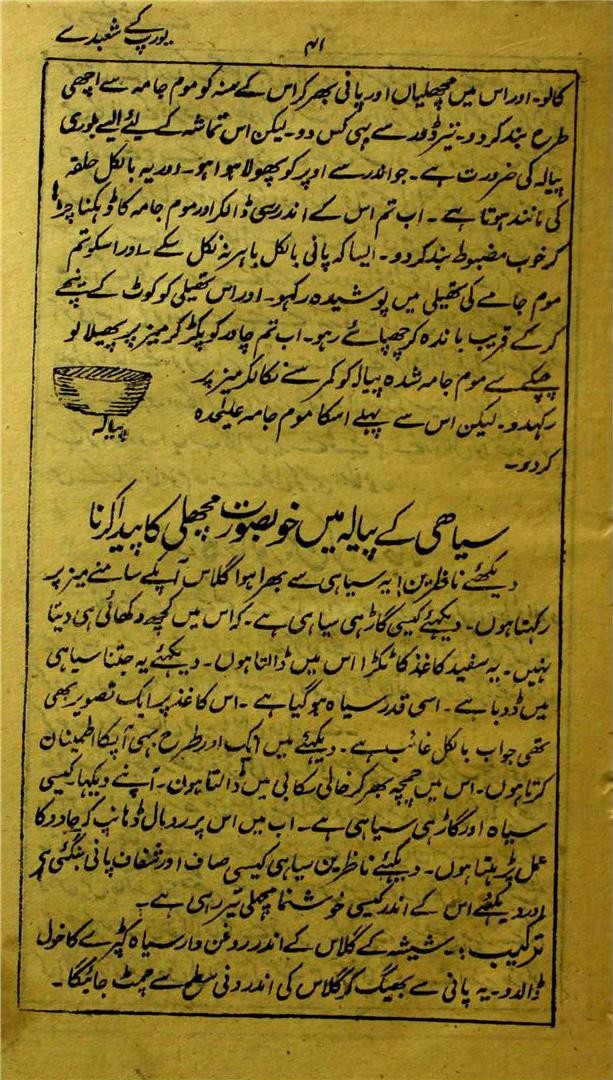 یورپ کے شعبدے
۴۱
کالو۔ اور اس میں مچھلیاں اور پانی بھر کر اس کے منہ کو موم جامہ سے اچھی
طرح بند کر دو۔ نیز ڈور سے بہی کس دو۔ لیکن اس تماشہ کے لیئے ایسے بلوری
پیالہ کی ضرورت ہے۔ جو اندر سے اوپر کو پھولا ہوا ہو۔ اور یہ بالکل حلقہ
کی مانند ہوتا ہے۔ اب تم اس کے اندر سی ڈالکر اور موم جامہ کا ڈہکنا چڑھا
کر خوب مضبوط بند کر دو۔ ایسا کہ پانی بالکل باہر نہ نکل سکے۔ اور اسکو تم
موم جامے کی تھیلی میں پوشیدہ رکہو۔ اور اس تھیلی کو کوٹ کے نیچے
کمر کے قریب باندہ کر چھپائے رہو۔ اب تم چادر کو پکڑ کر میز پر پھیلا لو
چپکے سے موم جامہ شدہ پیالہ کو کمر سے نکالکر میز پر
رکہدو۔ لیکن اس سے پہلے اسکا موم جامہ علیٰحدہ
کر دو۔
پیالہ
سیاھی کے پیالہ میں خوبصورت مچھلی کا پیدا کرنا
دیکھئے ناظرین! یہ سیاہی سے بھرا ہوا گلاس آپکے سامنے میز پر
رکہتا ہوں۔ دیکہئے کیسی گاڑہی سیاہی ہے۔ کہ اس میں کچھ دکھائی ہی دیتا
نہیں۔ یہ سفید کاغذ کا ٹکڑا اس میں ڈالتا ہوں۔ دیکہئے یہ جتنا سیاہی
میں ڈوبا ہے۔ اسی قدر سیاہ ہو گیا ہے۔ اس کاغذ پر ایک تصویر بھی
تھی جو اب بالکل غائب ہے۔ دیکہئے میں ایک اور طرح بہی آپکا اطمینان
کرتا ہوں۔ اس میں چمچہ بھر کر خالی رکابی میں ڈالتا ہون۔ آپنے دیکہا کیسی
سیاہ اور گاڑہی سیاہی ہے۔ اب میں اس پر رومال ڈہانپ کر جادو کا
عمل پڑہتا ہوں۔ دیکہئے ناظرین سیاہی کیسی صاف اور شفاف پانی بنگئی ہے
اور دیکھئے اس کے اندر کیسی خوشنما مچھلی تیر رہی ہے۔
ترکیب :۔ شیشہ کے گلاس کے اندر روغن دار سیاہ کپڑے کا خول
ڈالدو۔ یہ پانی سے بھیگ کر گلاس کی اندرونی سطح سے چمٹ جائیگا۔